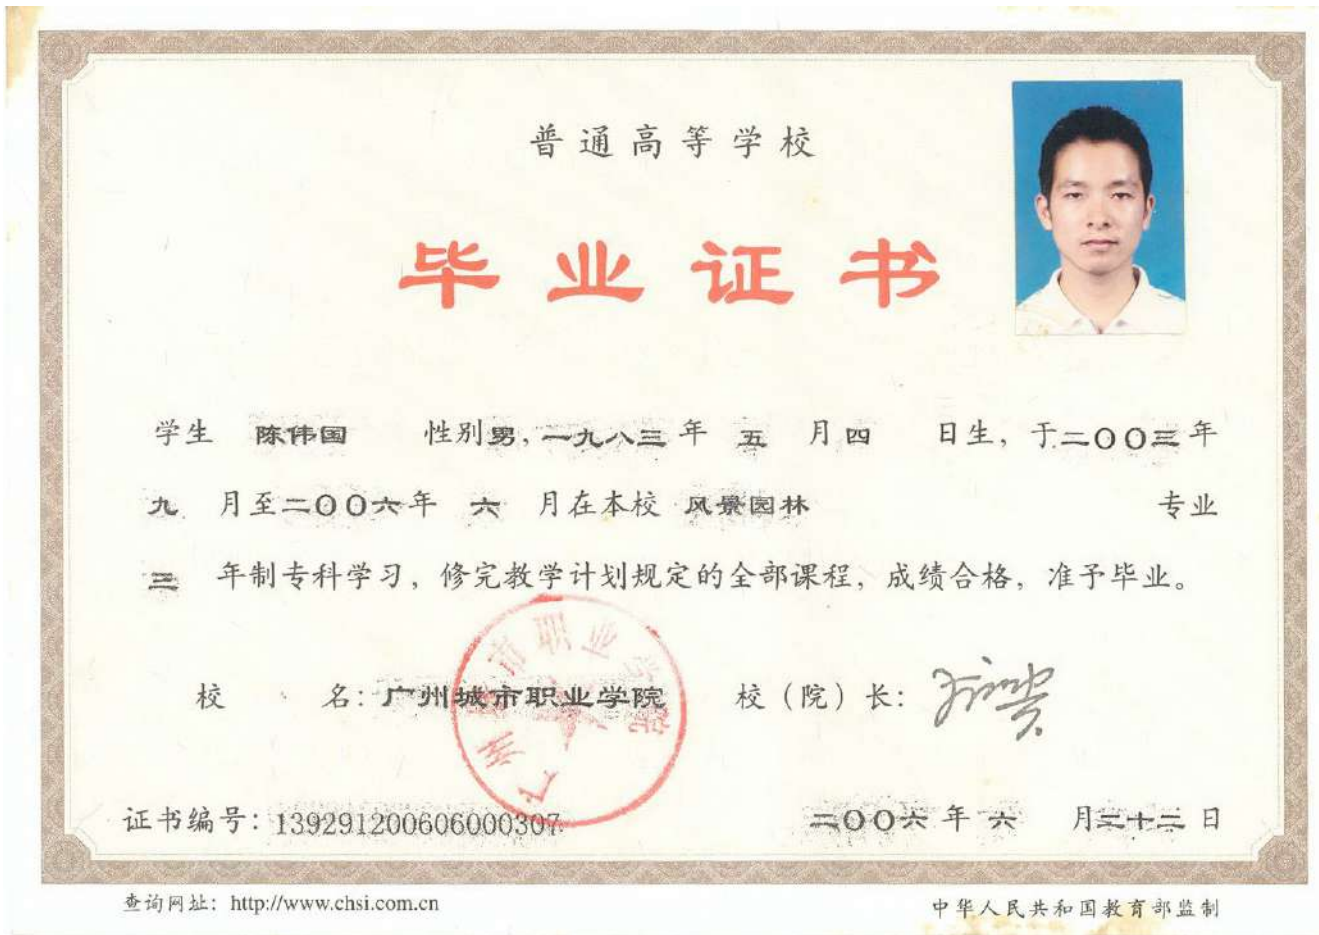 普通高等学校
毕业证书
学生 陈伟国 性别男，一九八三年 五 月四 日生，于二〇〇三年
九 月至二〇〇六年 六 月在本校 风景园林 专业
三 年制专科学习，修完教学计划规定的全部课程，成绩合格，准予毕业。
广州城市职业学院
校 名：广州城市职业学院 校（院）长：
证书编号：139291200606000307 二〇〇六年 六 月二十二日
查询网址：http://www.chsi.com.cn 中华人民共和国教育部监制